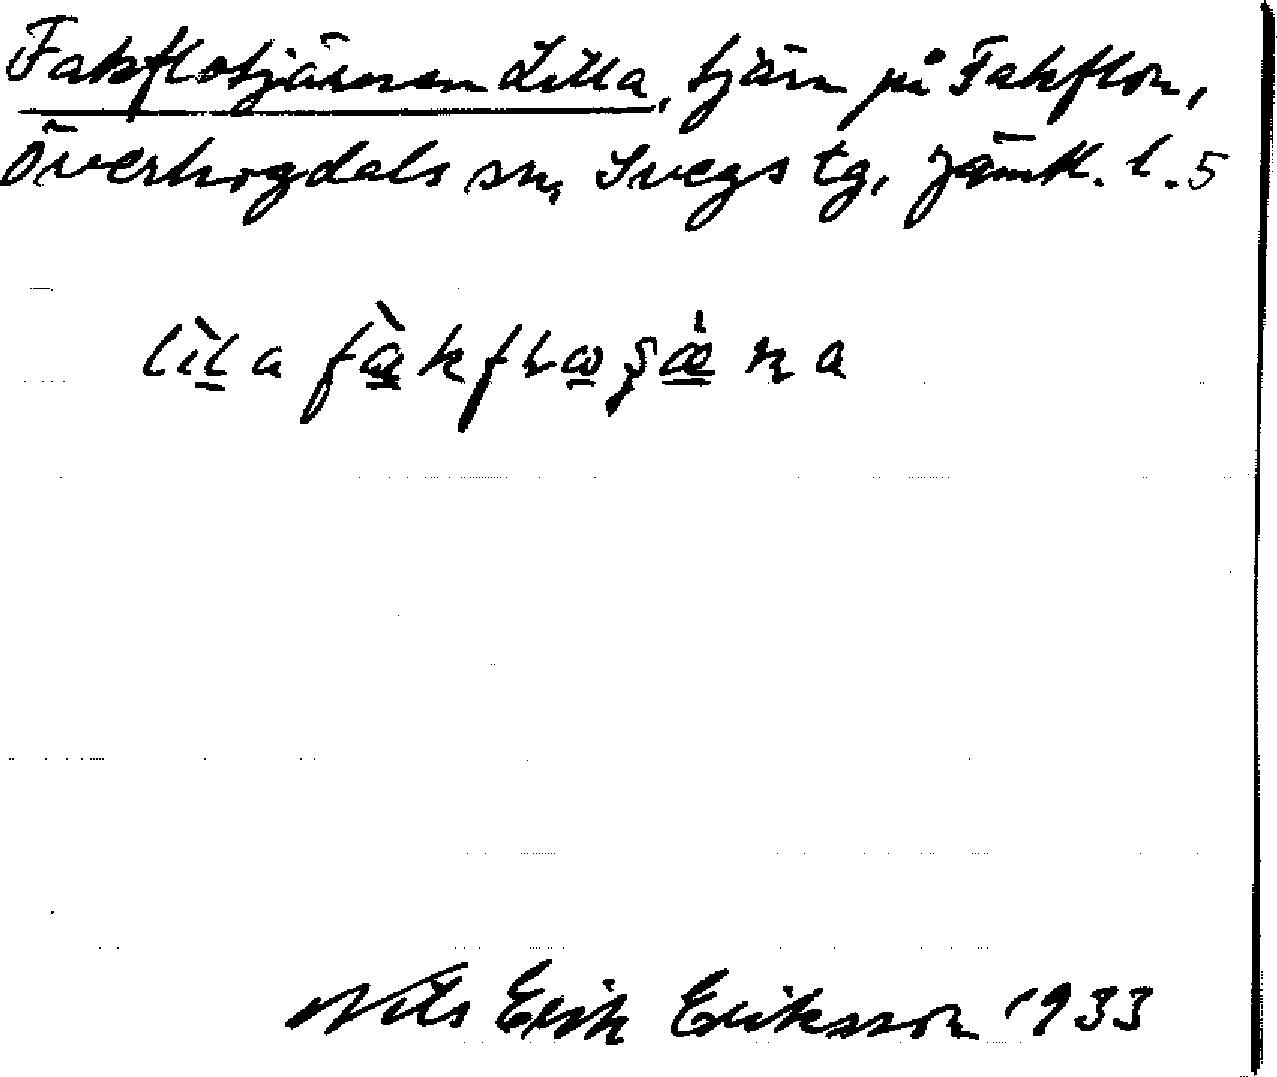 Fakflotjärnen Lilla, tjärn på Fakflon,
Överhogdals sn, Svegs tg, Jämtl. l. 5
lìla fàkfLωʂæ̀ɳa
Nils Erik Eriksson 1933